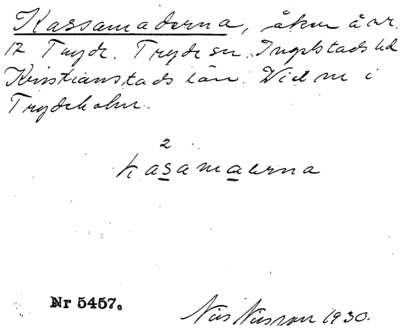 Kassamaderna, åker å nr.
12 Tryde. Tryde sn. Ingelstads hd
Kristianstads län. Vid nr i
Trydeholm.
2
kasamaerna
Nr 5457.
Nils Nilsson 1930.